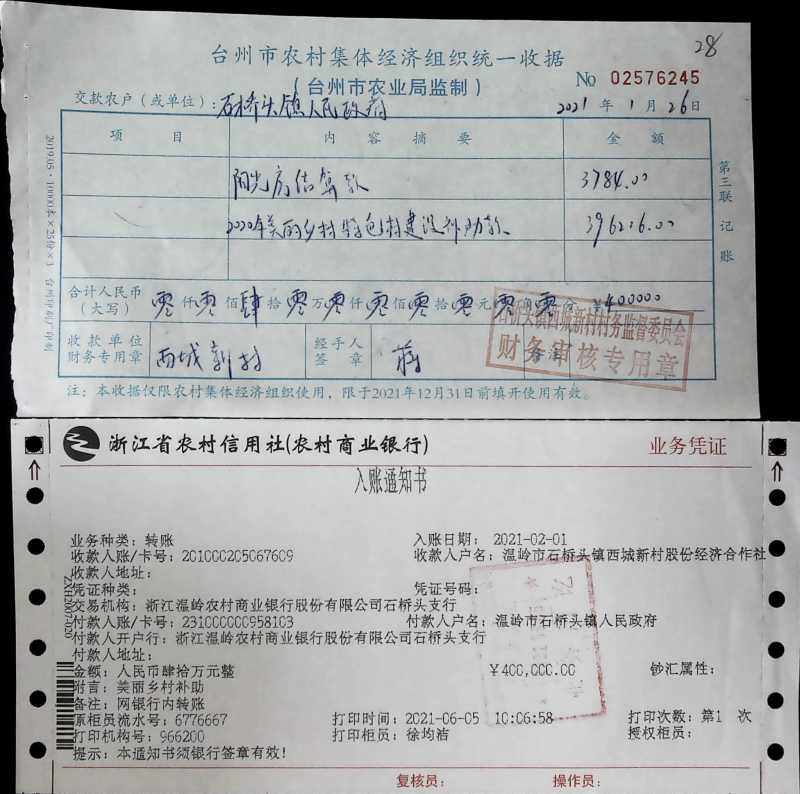 28
台州市农村集体经济组织统一收据
(台州市农业局监制)
No 02576245
交款农户(或单位):石桥头镇人民政府 2021年1月26日
项目 内容摘要 金额
阳光房结算款 3784.00
2020年美丽乡村特色村建设补助款 396216.00
合计人民币(大写) 零仟零佰肆拾零万零仟零佰零拾零元零角零分 ¥400000
收款单位财务专用章 西城新村 经手人签章 蒋
石桥头镇西城新村村务监督委员会
财务审核专用章
注:本收据仅限农村集体经济组织使用,限于2021年12月31日前填开使用有效。
第三联 记账
2019.05·10000本×25份×3 台州印刷厂印制
浙江省农村信用社(农村商业银行) 业务凭证
入账通知书
业务种类:转账 入账日期: 2021-02-01
收款人账/卡号:201000205067609 收款人户名:温岭市石桥头镇西城新村股份经济合作社
收款人地址:
凭证种类: 凭证号码:
交易机构:浙江温岭农村商业银行股份有限公司石桥头支行
付款人账/卡号:231000000958103 付款人户名:温岭市石桥头镇人民政府
付款人开户行:浙江温岭农村商业银行股份有限公司石桥头支行
付款人地址:
金额:人民币肆拾万元整 ¥400,000.00 钞汇属性:
附言:美丽乡村补助
备注:网银行内转账
原柜员流水号:6776667 打印时间:2021-06-05 10:06:58 打印次数:第1 次
打印机构号:966200 打印柜员:徐均洁 授权柜员:
提示:本通知书须银行签章有效!
复核员: 操作员: